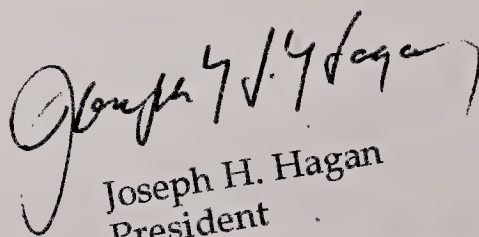 Joseph H. Hagan
Joseph H. Hagan
President